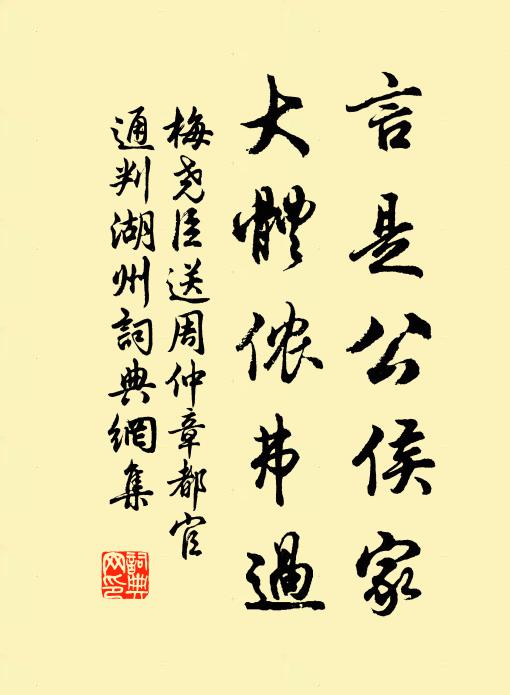 言是公侯家
大體侬弗過
梅尧臣送周仲章都官
通判湖州詞典網集
詞典
网印